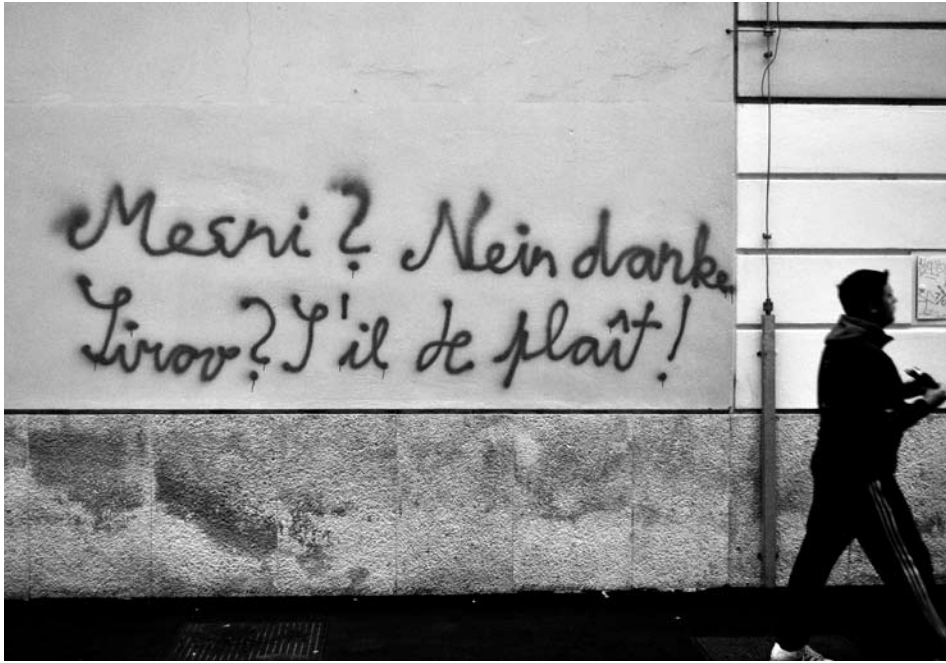 Mesni? Nein danke
Sirov? S'il te plaît!